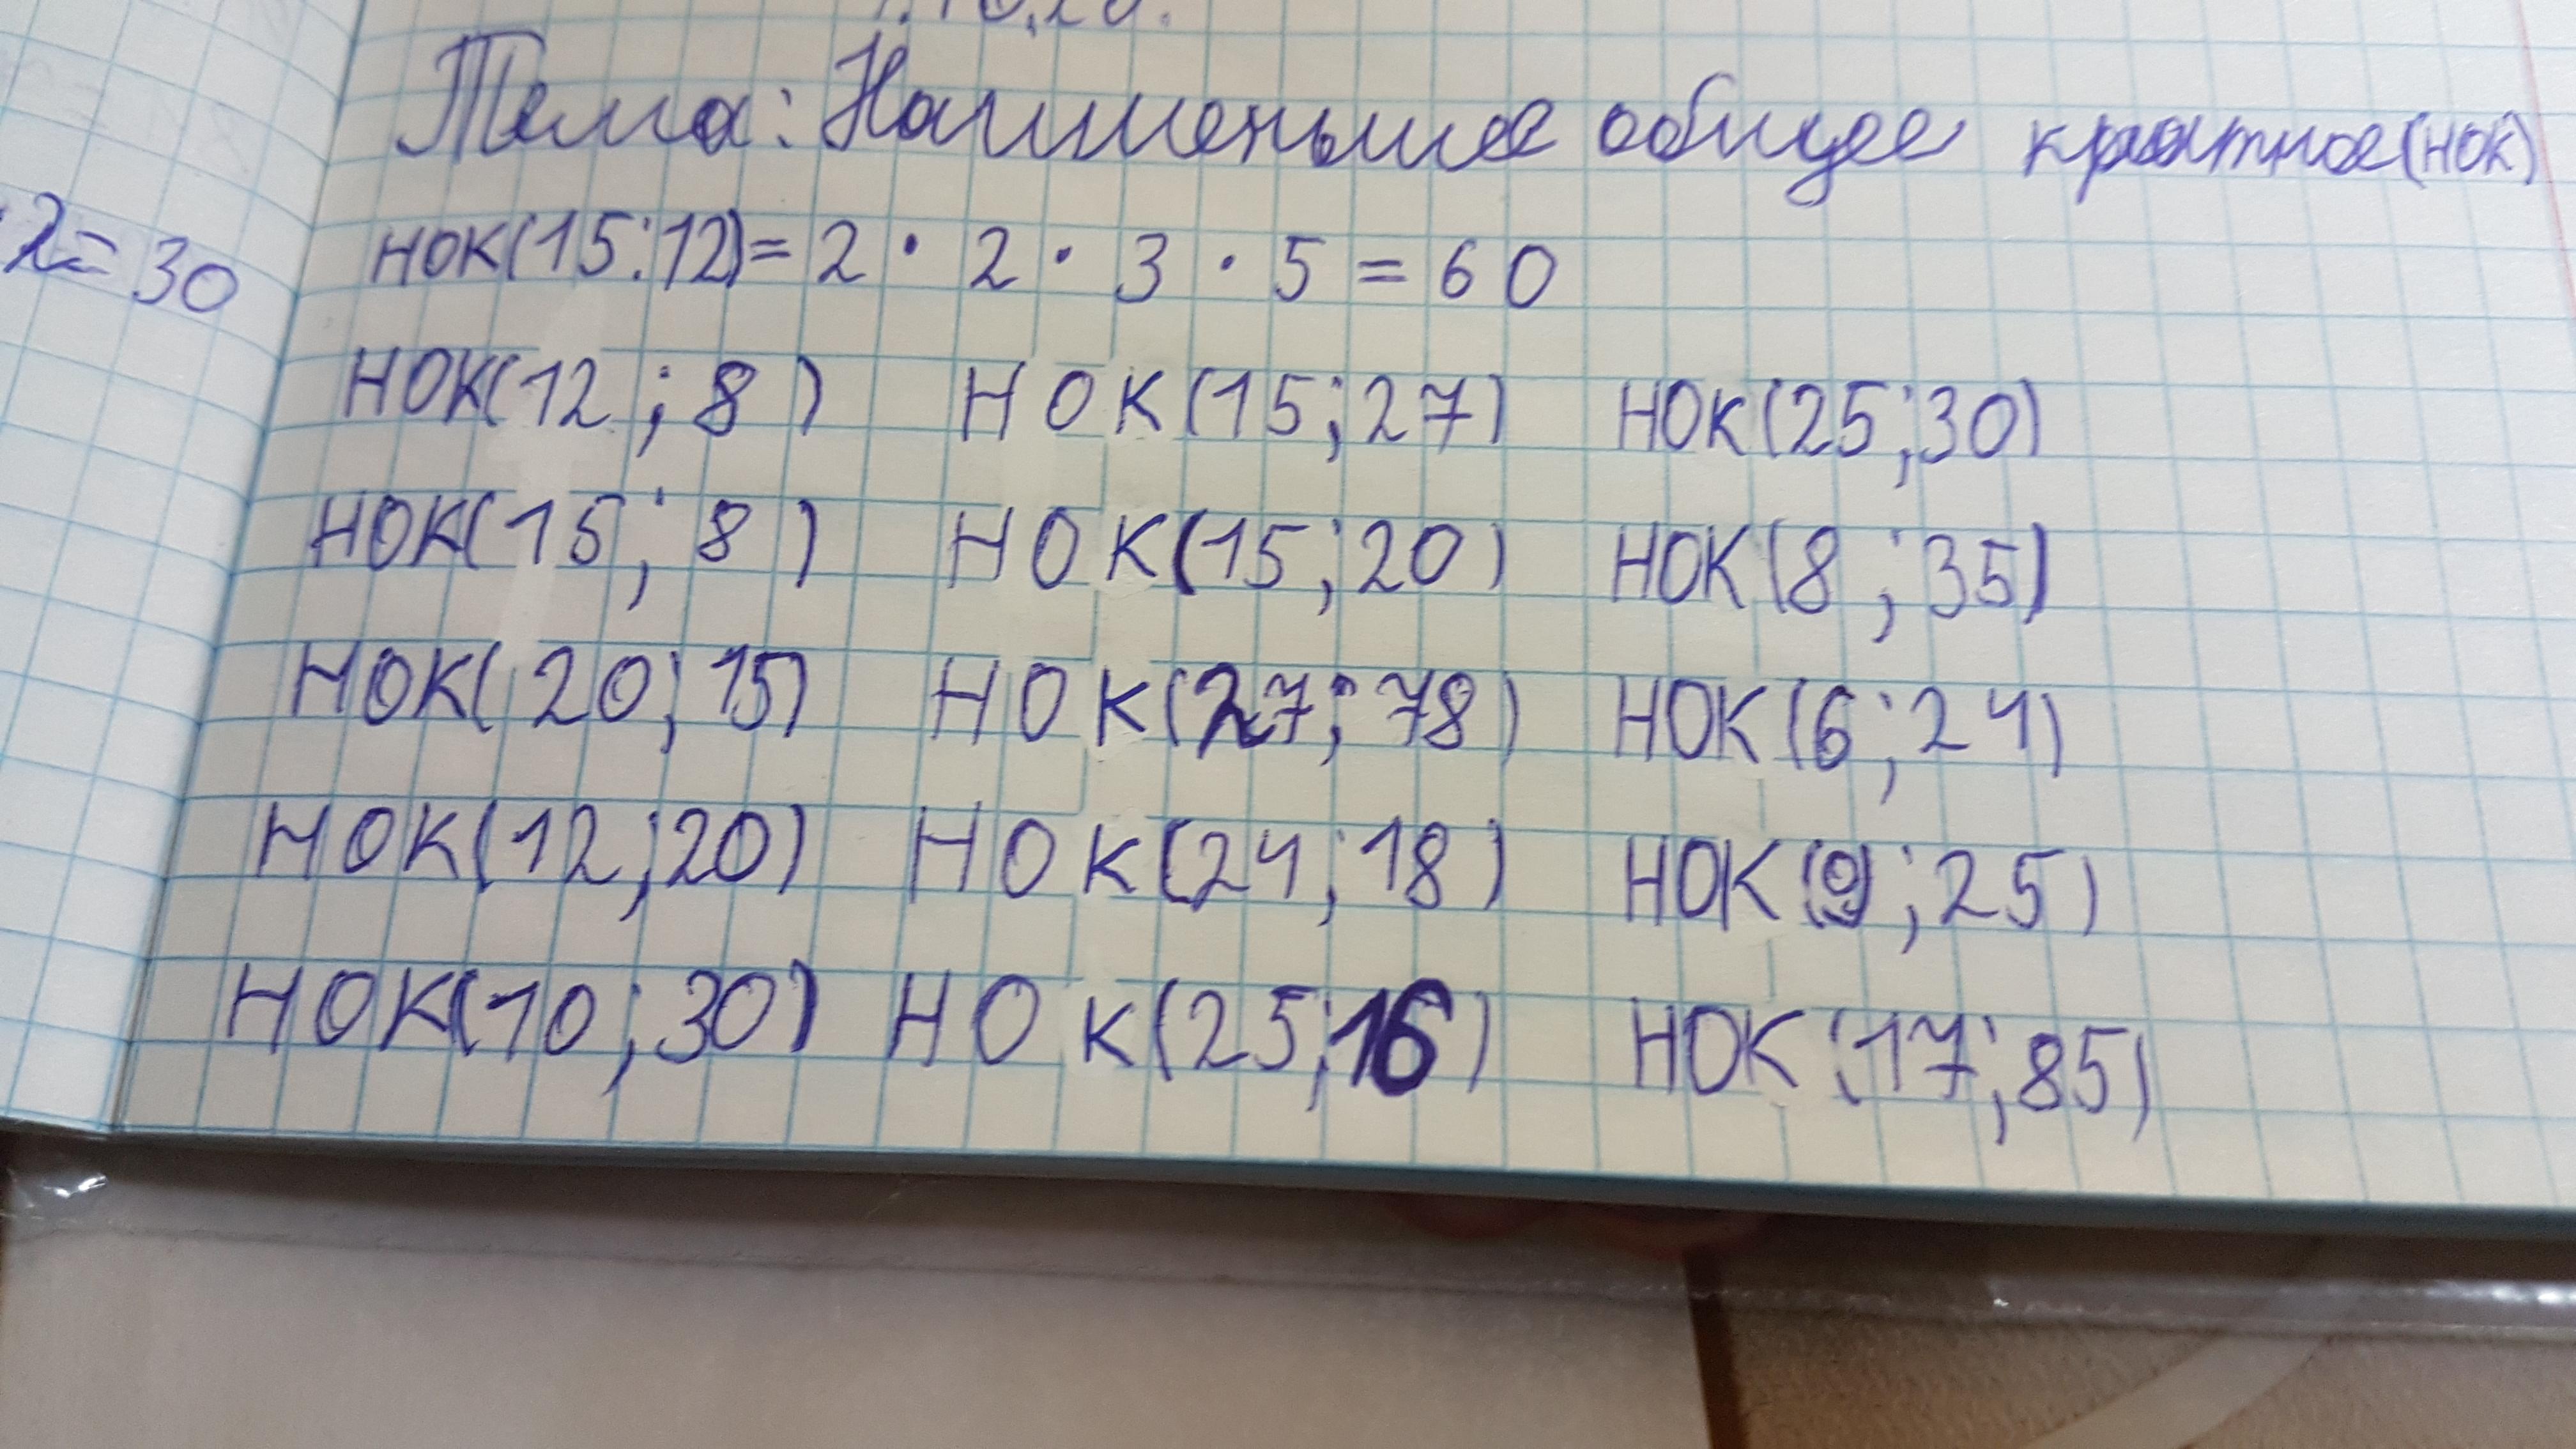 2=30
Тема: Наименьшее общее кратное(НОК)
НОК(15:12)= 2 · 2 · 3 · 5 = 60
НОК(12 ; 8 ) НОК(15;27) НОК(25;30)
НОК(15; 8 ) НОК(15;20) НОК(8 ; 35)
НОК( 20; 15) НОК(27; 78) НОК(6;24)
НОК(12;20) НОК(24;18) НОК(9;25)
НОК(10;30) НОК(25;16) НОК(17;85)